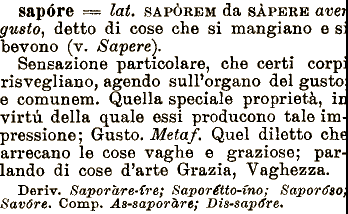 sapóre = lat. SAPÒREM da SÀPERE aver
gusto, detto di cose che si mangiano e si
bevono (v. Sapere).
Sensazione particolare, che certi corpi
risvegliano, agendo sull'organo del gusto:
e comunem. Quella speciale proprietà, in
virtú della quale essi producono tale im-
pressione; Gusto. Metaf. Quel diletto che
arrecano le cose vaghe e graziose; par-
lando di cose d'arte Grazia, Vaghezza.
Deriv. Saporàre-íre; Saporétto-íno; Saporóso;
Savóre. Comp. As-saporàre; Dis-sapóre.